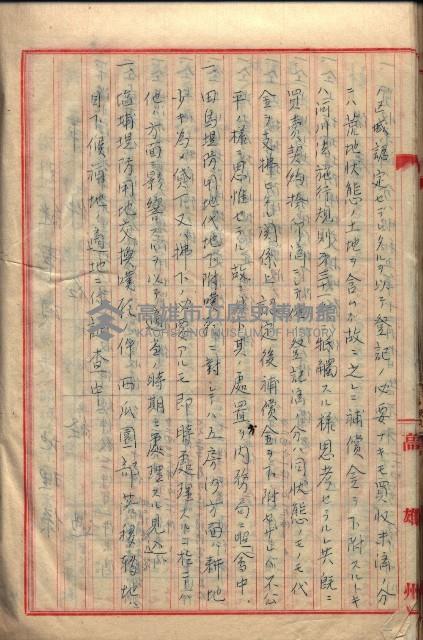 ハ区域認定セラレタルヲ以テ登記ノ必要ナキモ買収未済ノ分
ニハ荒地状態ノ土地ヲ含ムガ故ニ之レニ補償金ヲ下附スルトキ
ハ河川法施行規則第三
牴觸スル様思考セラルレ共既ニ
買賣契約換
登記済ノ分ハ同状態ノモノモ代
金ヲ支拂
関係上認定後補償金ヲ下附セザルハ不公
平ノ様ニ思惟セラル
其ノ處置方内務局ニ照會中
一、田鳥堤防用地代地下附嘆願ニ對シテハ五房洲方面ニ耕地
少キ為メ貸下又ハ拂下ノ必要アルモ即時處理スルニ於テハ
他ノ方面ニ影響
ヲ以テ相當ノ時期ニ處理スル見込
一、塩埔堤防用地交換嘆願ノ件西瓜園部落移轉地ハ
目下候補地ノ適地ニ付調査中
高雄州
高雄市立歷史博物館
KAOHSIUNG MUSEUM OF HISTORY